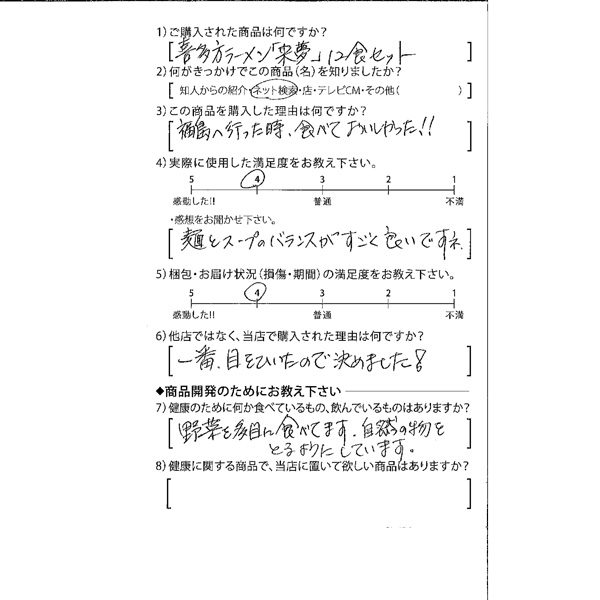 1）ご購入された商品は何ですか？
[喜多方ラーメン「来夢」12食セット]
2）何がきっかけでこの商品（名）を知りましたか？
[知人からの紹介・ネット検索・店・テレビCM・その他（　　）]
3）この商品を購入した理由は何ですか？
[福島へ行った時、食べておいしかった!!]
4）実際に使用した満足度をお教え下さい。
5 4 3 2 1
感動した!! 普通 不満
・感想をお聞かせ下さい。
[麺とスープのバランスがすごく良いですネ]
5）梱包・お届け状況（損傷・期間）の満足度をお教え下さい。
5 4 3 2 1
感動した!! 普通 不満
6）他店ではなく、当店で購入された理由は何ですか？
[一番、目をひいたので決めました!]
◆商品開発のためにお教え下さい
7）健康のために何か食べているもの、飲んでいるものはありますか？
[野菜を多目に食べてます。自然の物を
とるようにしています。]
8）健康に関する商品で、当店に置いて欲しい商品はありますか？
[　　]